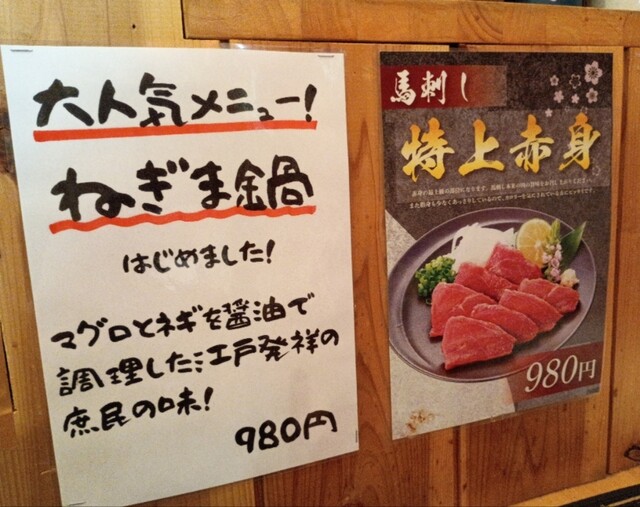 大人気メニュー!
ねぎま鍋
はじめました!
マグロとネギを醤油で
調理した江戸発祥の
庶民の味!
980円
馬刺し
特上赤身
980円